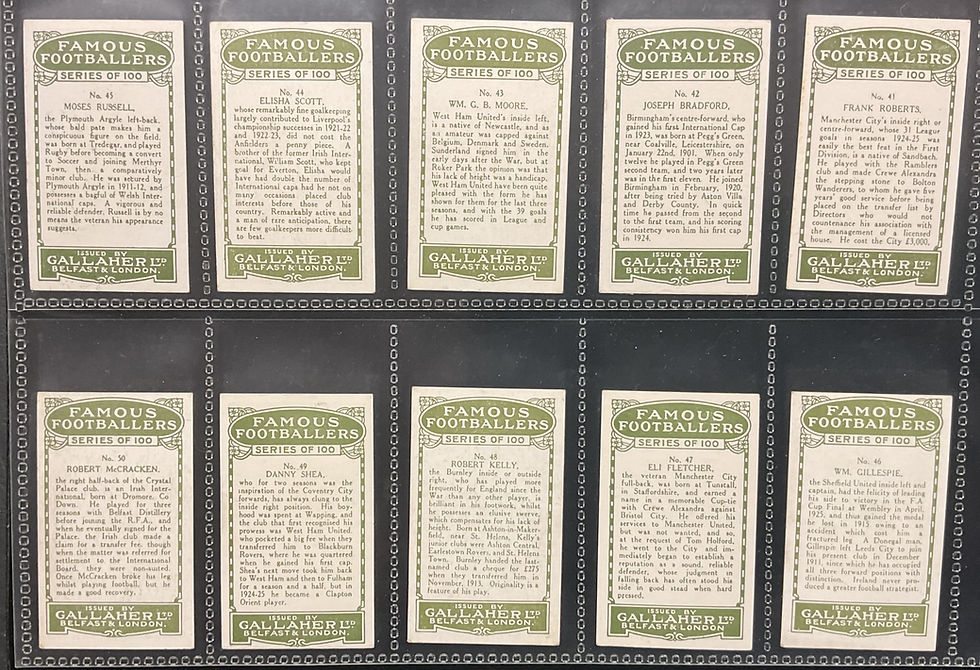 FAMOUS
FOOTBALLERS
SERIES OF 100
No. 45
MOSES RUSSELL,
the Plymouth Argyle left-back,
whose bald pate makes him a
conspicuous figure on the field,
was born at Tredegar, and played
Rugby before becoming a convert
to Soccer and joining Merthyr
Town, then a comparatively
minor club. He was secured by
Plymouth Argyle in 1911-12, and
possesses a bagful of Welsh Inter-
national caps. A vigorous and
reliable defender, Russell is by no
means the veteran his appearance
suggests.
ISSUED BY
GALLAHER LTD
BELFAST & LONDON.
FAMOUS
FOOTBALLERS
SERIES OF 100
No. 44
ELISHA SCOTT,
whose remarkably fine goalkeeping
largely contributed to Liverpool's
championship successes in 1921-22
and 1922-23, did not cost the
Anfielders a penny piece. A
brother of the former Irish Inter-
national, William Scott, who kept
goal for Everton, Elisha would
have had double the number of
International caps had he not on
many occasions placed club
interests before those of his
country. Remarkably active and
a man of rare anticipation, there
are few goalkeepers more difficult
to beat.
ISSUED BY
GALLAHER LTD
BELFAST & LONDON.
FAMOUS
FOOTBALLERS
SERIES OF 100
No. 43
WM. G. B. MOORE,
West Ham United's inside left,
is a native of Newcastle, and as
an amateur was capped against
Belgium, Denmark and Sweden.
Sunderland signed him in the
early days after the War, but at
Roker Park the opinion was that
his lack of height was a handicap.
West Ham United have been quite
pleased with the form he has
shown for them for the last three
seasons, and with the 39 goals
he has scored in League and
cup games.
ISSUED BY
GALLAHER LTD
BELFAST & LONDON.
FAMOUS
FOOTBALLERS
SERIES OF 100
No. 42
JOSEPH BRADFORD,
Birmingham's centre-forward, who
gained his first International Cap
in 1923, was born at Pegg's Green,
near Coalville, Leicestershire, on
January 22nd, 1901. When only
twelve he played in Pegg's Green
second team, and two years later
was in the first eleven. He joined
Birmingham in February, 1920,
after being tried by Aston Villa
and Derby County. In quick
time he passed from the second
to the first team, and his scoring
consistency won him his first cap
in 1924.
ISSUED BY
GALLAHER LTD
BELFAST & LONDON.
FAMOUS
FOOTBALLERS
SERIES OF 100
No. 41
FRANK ROBERTS,
Manchester City's inside right or
centre-forward, whose 31 League
goals in seasons 1924-25 was
easily the best feat in the First
Division, is a native of Sandbach.
He played with the Ramblers
club and made Crewe Alexandra
the stepping stone to Bolton
Wanderers, to whom he gave five
years' good service before being
placed on the transfer list by
Directors who would not
countenance his association with
the management of a licensed
house. He cost the City £3,000.
ISSUED BY
GALLAHER LTD
BELFAST & LONDON.
FAMOUS
FOOTBALLERS
SERIES OF 100
No. 50
ROBERT McCRACKEN,
the right half-back of the Crystal
Palace club, is an Irish Inter-
national, born at Dromore, Co.
Down. He played for three
seasons with Belfast Distillery
before joining the R.F.A., and
when he eventually signed for the
Palace, the Irish club made a
claim for a transfer fee, though
when the matter was referred for
settlement to the International
Board, they were non-suited.
Once McCracken broke his leg
whilst playing football, but he
made a good recovery.
ISSUED BY
GALLAHER LTD
BELFAST & LONDON.
FAMOUS
FOOTBALLERS
SERIES OF 100
No. 49
DANNY SHEA,
who for two seasons was the
inspiration of the Coventry City
forwards, has always clung to the
inside right position. His boy-
hood was spent at Wapping, and
the club that first recognised his
prowess was West Ham United,
who pocketed a big fee when they
transferred him to Blackburn
Rovers, where he was quartered
when he gained his first cap.
Shea's next move took him back
to West Ham and then to Fulham
for a season and a half, but in
1924-25 he became a Clapton
Orient player.
ISSUED BY
GALLAHER LTD
BELFAST & LONDON.
FAMOUS
FOOTBALLERS
SERIES OF 100
No. 48
ROBERT KELLY,
the Burnley inside or outside
right, who has played more
frequently for England since the
War than any other player, is
brilliant in his footwork, whilst
he possesses an elusive swerve,
which compensates for his lack of
height. Born at Ashton-in-Maker-
field, near St. Helens, Kelly's
junior clubs were Ashton Central,
Earlestown Rovers, and St. Helens
Town. Burnley handed the last-
named club a cheque for £275
when they transferred him in
November, 1913. Originality is a
feature of his play.
ISSUED BY
GALLAHER LTD
BELFAST & LONDON.
FAMOUS
FOOTBALLERS
SERIES OF 100
No. 47
ELI FLETCHER,
the veteran Manchester City
full-back, was born at Tunstall,
in Staffordshire, and earned a
name in a memorable Cup-tie
with Crewe Alexandra against
Bristol City. He offered his
services to Manchester United,
but was not wanted, and so,
at the request of Tom Holford,
he went to the City and im-
mediately began to establish a
reputation as a sound, reliable
defender, whose judgment in
falling back has often stood his
side in good stead when hard
pressed.
ISSUED BY
GALLAHER LTD
BELFAST & LONDON.
FAMOUS
FOOTBALLERS
SERIES OF 100
No. 46
WM. GILLESPIE,
the Sheffield United inside left and
captain, had the felicity of leading
his side to victory in the F.A
Cup Final at Wembley in April,
1925, and thus gained the medal
he lost in 1915 owing to an
accident which cost him a
fractured leg. A Donegal man,
Gillespie left Leeds City to join
his present club in December
1911, since which he has occupied
all three forward positions with
distinction. Ireland never pro-
duced a greater football strategist.
ISSUED BY
GALLAHER LTD
BELFAST & LONDON.